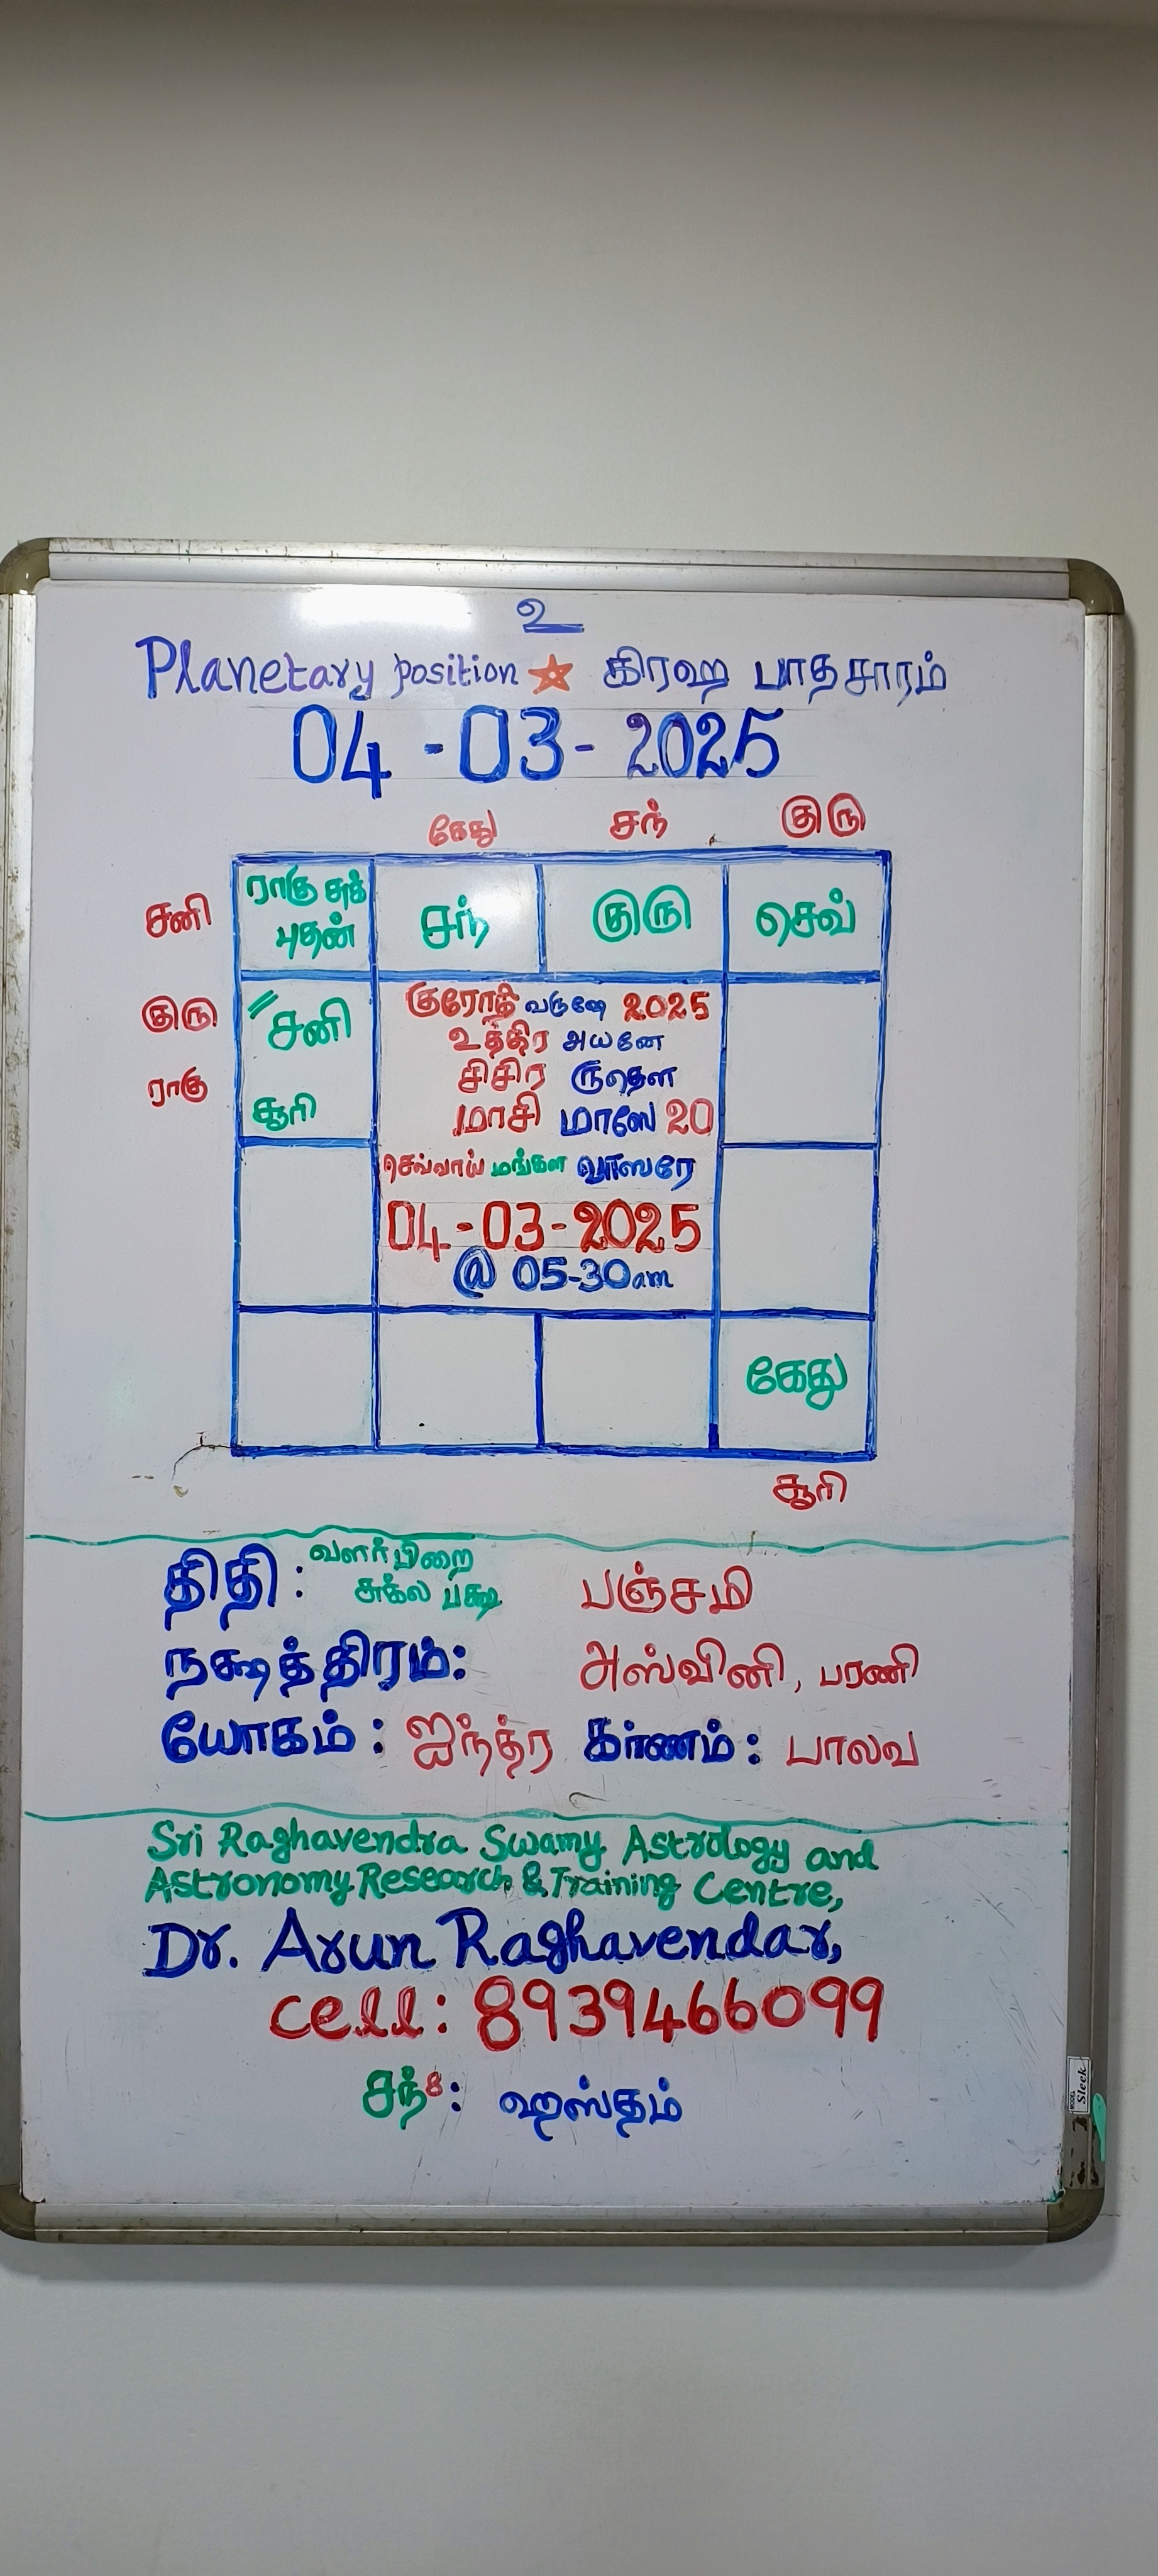 உ
Planetary position கிரஹ பாதசாரம்
04-03-2025
கேது சந் குரு
சனி
ராகு சுக்
புதன்
சந் குரு செவ்
குரு
சனி
ராகு
சூரி
குரோதி வருஷே 2025
உத்திர அயனே
சிசிர ருதௌ
மாசி மாஸே 20
செவ்வாய் மங்கள வாஸரே
04-03-2025
@ 05-30am
கேது
சூரி
திதி : வளர்பிறை
சுக்ல பக்ஷ பஞ்சமி
நக்ஷத்திரம்: அஸ்வினி, பரணி
யோகம் : ஐந்த்ர கர்ணம் : பாலவ
Sri Raghavendra Swamy Astrology and
Astronomy Research & Training Centre,
Dr. Arun Raghavendar,
cell: 8939466099
சந்8: ஹஸ்தம்
MODEL
Sleek